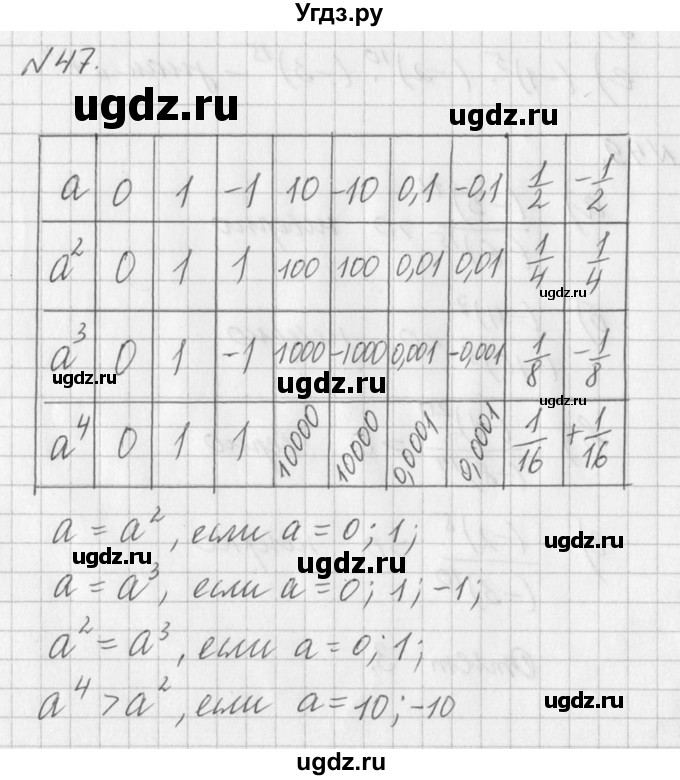 Угдз.ру
N47.
ugdz.ru
ugdz.ru
a 0 1 -1 10 -10 0,1 -0,1 1/2 -1/2
a² 0 1 1 100 100 0,01 0,01 1/4 1/4
ugdz.ru
a³ 0 1 -1 1000 -1000 0,001 -0,001 1/8 -1/8
ugdz.ru
ugdz.ru
ugdz.ru
a⁴ 0 1 1 10000 10000 0,0001 0,0001 1/16 +1/16
a = a², если a = 0; 1;
ugdz.ru
ugdz.ru
ugdz.ru
a = a³, если a = 0; 1; -1;
a² = a³, если a = 0; 1;
a⁴ > a², если a = 10; -10
ugdz.ru
ugdz.ru